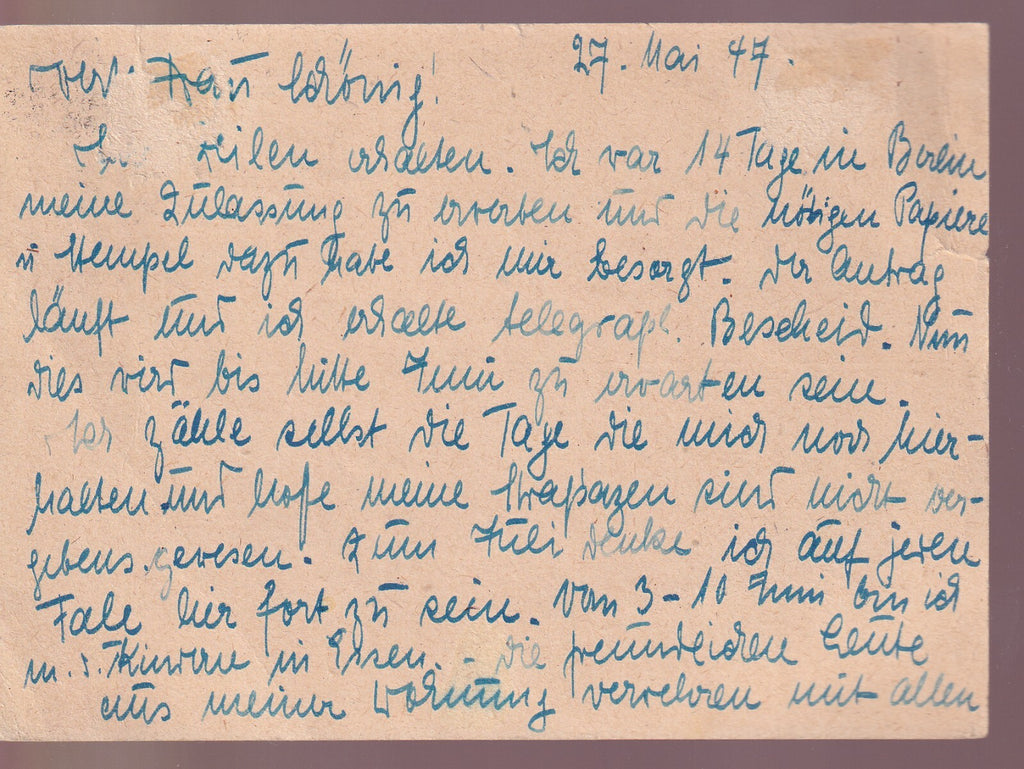 27. Mai 47.
Wert. Frau Schönig!
Zeilen erhalten. Ich war 14 Tage in Berlin
meine Zulassung zu erwerben und die nötigen Papiere
u Stempel dazu habe ich mir besorgt. Der Antrag
läuft und ich erhalte telegraph. Bescheid. Nun
dies wird bis Mitte Juni zu erwarten sein.
Ich zähle selbst die Tage die mich noch hier-
halten und hoffe meine Strapazen sind nicht ver-
gebens gewesen. Zum Juli denke ich auf jeden
Falle hier fort zu sein. Vom 3-10 Juni bin ich
m. d. Kindern in Essen. - Die freundlichen Leute
aus meiner Wohnung verwehren mit allen